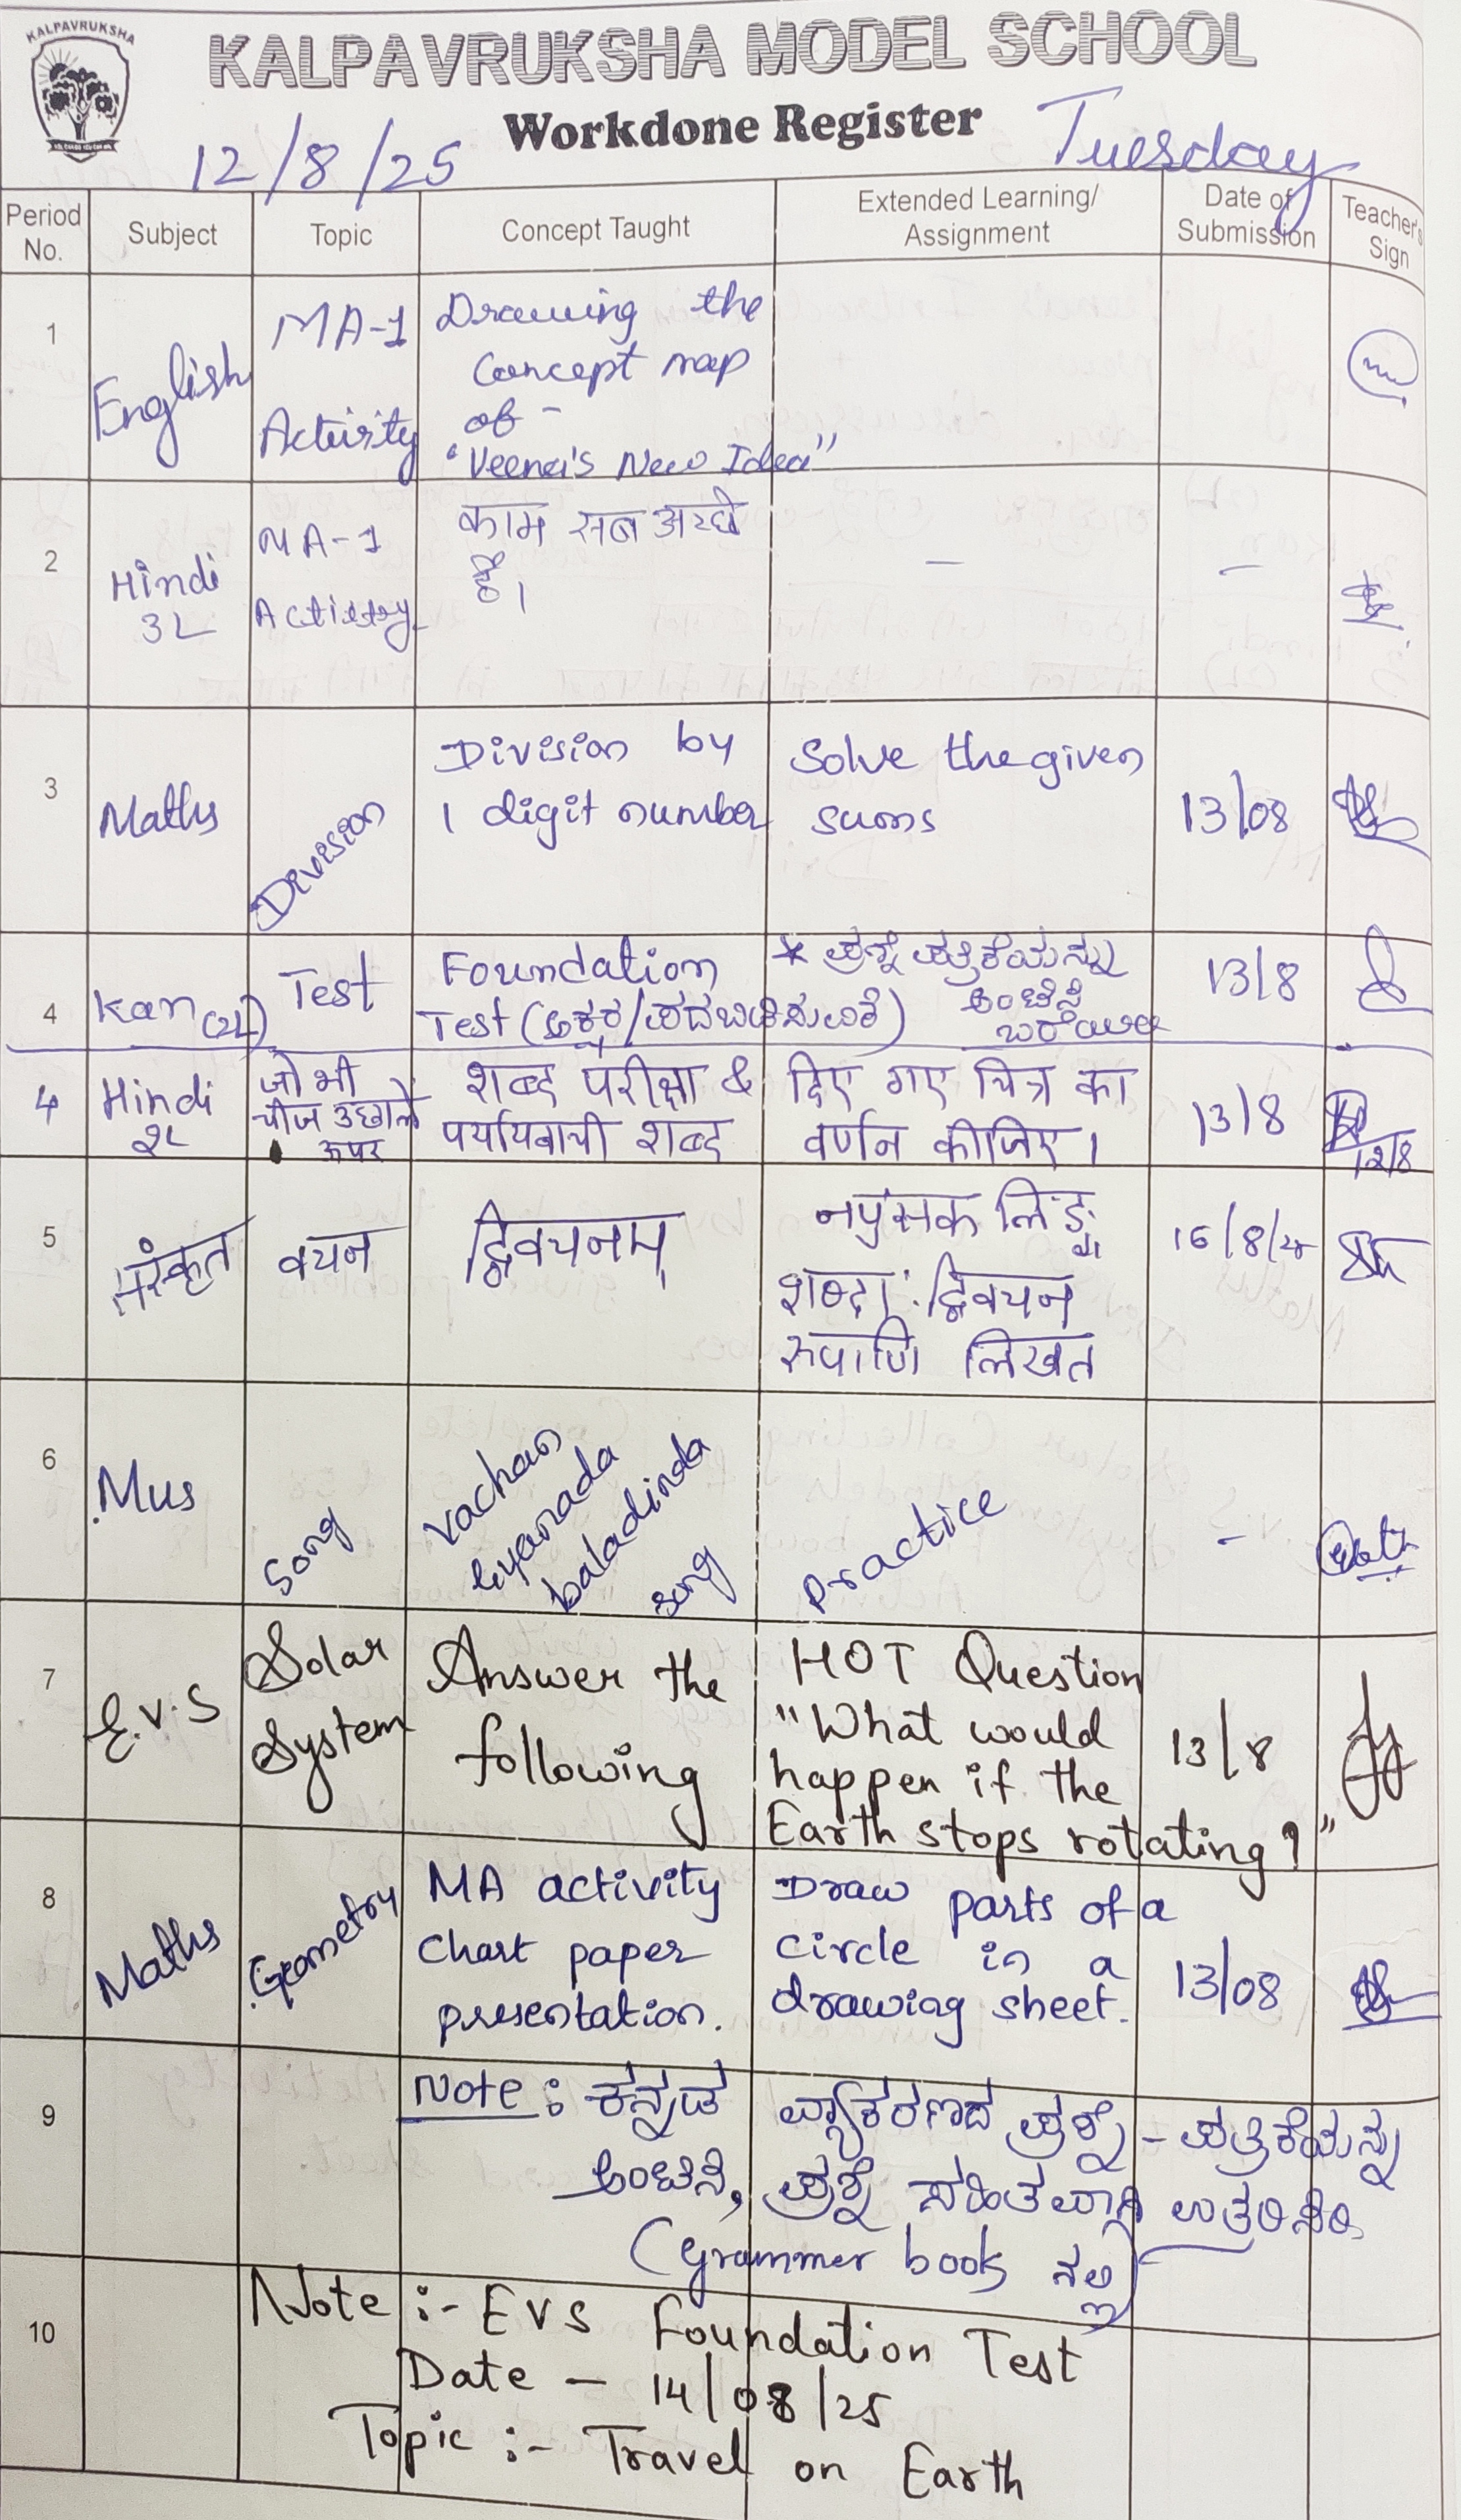 KALPAVRUKSHA
KALPAVRUKSHA MODEL SCHOOL
Workdone Register
12/8/25
Tuesday
Period No.
Subject
Topic
Concept Taught
Extended Learning/ Assignment
Date of Submission
Teacher's Sign
1
English
MA-1
Activity
Drawing the
Concept map
of -
"Veena's New Idea"
2
Hindi
3L
MA-1
Activity
काम सब अच्छे
हैं।
-
-
3
Maths
Division
Division by
1 digit number
Solve the given
sums
13/08
4
Kan (2L)
Test
Foundation
Test (ಅಕ್ಷರ/ಪದಬಿಡಿಸುವಿಕೆ)
* ಪ್ರಶ್ನೆ ಪತ್ರಿಕೆಯನ್ನು
ಅಂಟಿಸಿ
13/8
4
Hindi
2L
जो भी
चीज उछाले
ऊपर
शब्द परीक्षा &
पर्यायवाची शब्द
दिए गए चित्र का
वर्णन कीजिए।
13/8
12/8
5
संस्कृत
वचन
द्विवचनम्
नपुंसक लिङ्ग
शब्दा: द्विवचन
रुपाणि लिखत
16/8/25
6
Mus
Song
Vachan
Gyanada
baladinda
song
Practice
-
7
E.V.S
Solar
System
Answer the
following
HOT Question
"What would
happen if the
Earth stops rotating?"
13/8
8
Maths
Geometry
MA activity
Chart paper
presentation.
Draw parts of a
circle in a
drawing sheet.
13/08
9
Note: ಕನ್ನಡ ವ್ಯಾಕರಣದ ಪ್ರಶ್ನೆ-ಪತ್ರಿಕೆಯನ್ನು
ಅಂಟಿಸಿ, ಪ್ರಶ್ನೆ ಸಹಿತವಾಗಿ ಉತ್ತರಿಸಿರಿ.
(Grammer book ನಲ್ಲಿ)
10
Note :- EVS Foundation Test
Date - 14/08/25
Topic :- Travel on Earth